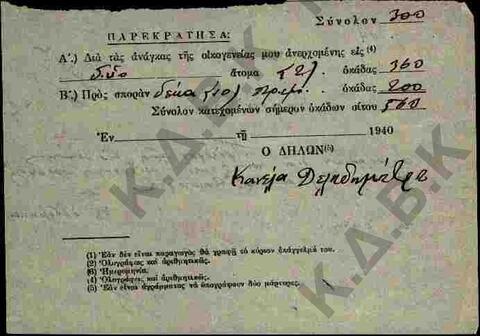 Σύνολον 300
ΠΑΡΕΚΡΑΤΗΣΑ:
Α´.) Διὰ τὰς ἀνάγκας τῆς οἰκογενείας μου ἀνερχομένης εἰς (4)
δύο ἄτομα (2) ὀκάδας 360
Β´.) Πρὸς σπορὰν δέκα (10) στρεμ. ὀκάδας 200
Σύνολον κατεχομένων σήμερον ὀκάδων σίτου 560
Ἐν τῇ 1940
Ο ΔΗΛΩΝ(5)
(1) Ἐὰν δὲν εἶναι παραγωγὸς θὰ γραφῇ τὸ κύριον ἐπάγγελμά του.
(2) Ὁλογράφως καὶ ἀριθμητικῶς.
(6) Ἡμερομηνία.
(4) Ὁλογράφως καὶ ἀριθμητικῶς.
(5) Ἐὰν εἶναι ἀγράμματος νὰ ὑπογράφουν δύο μάρτυρες.
Κ.Δ.Β.Κ